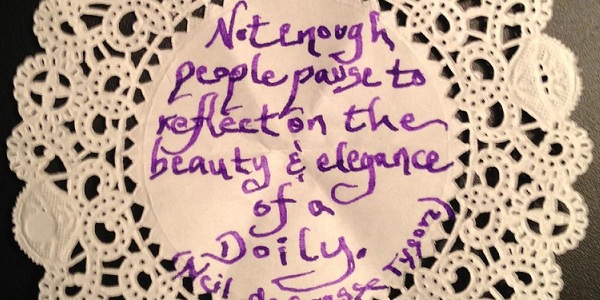 Not enough
people pause to
reflect on the
beauty & elegance
of a
Doily.
Neil deGrasse Tyson